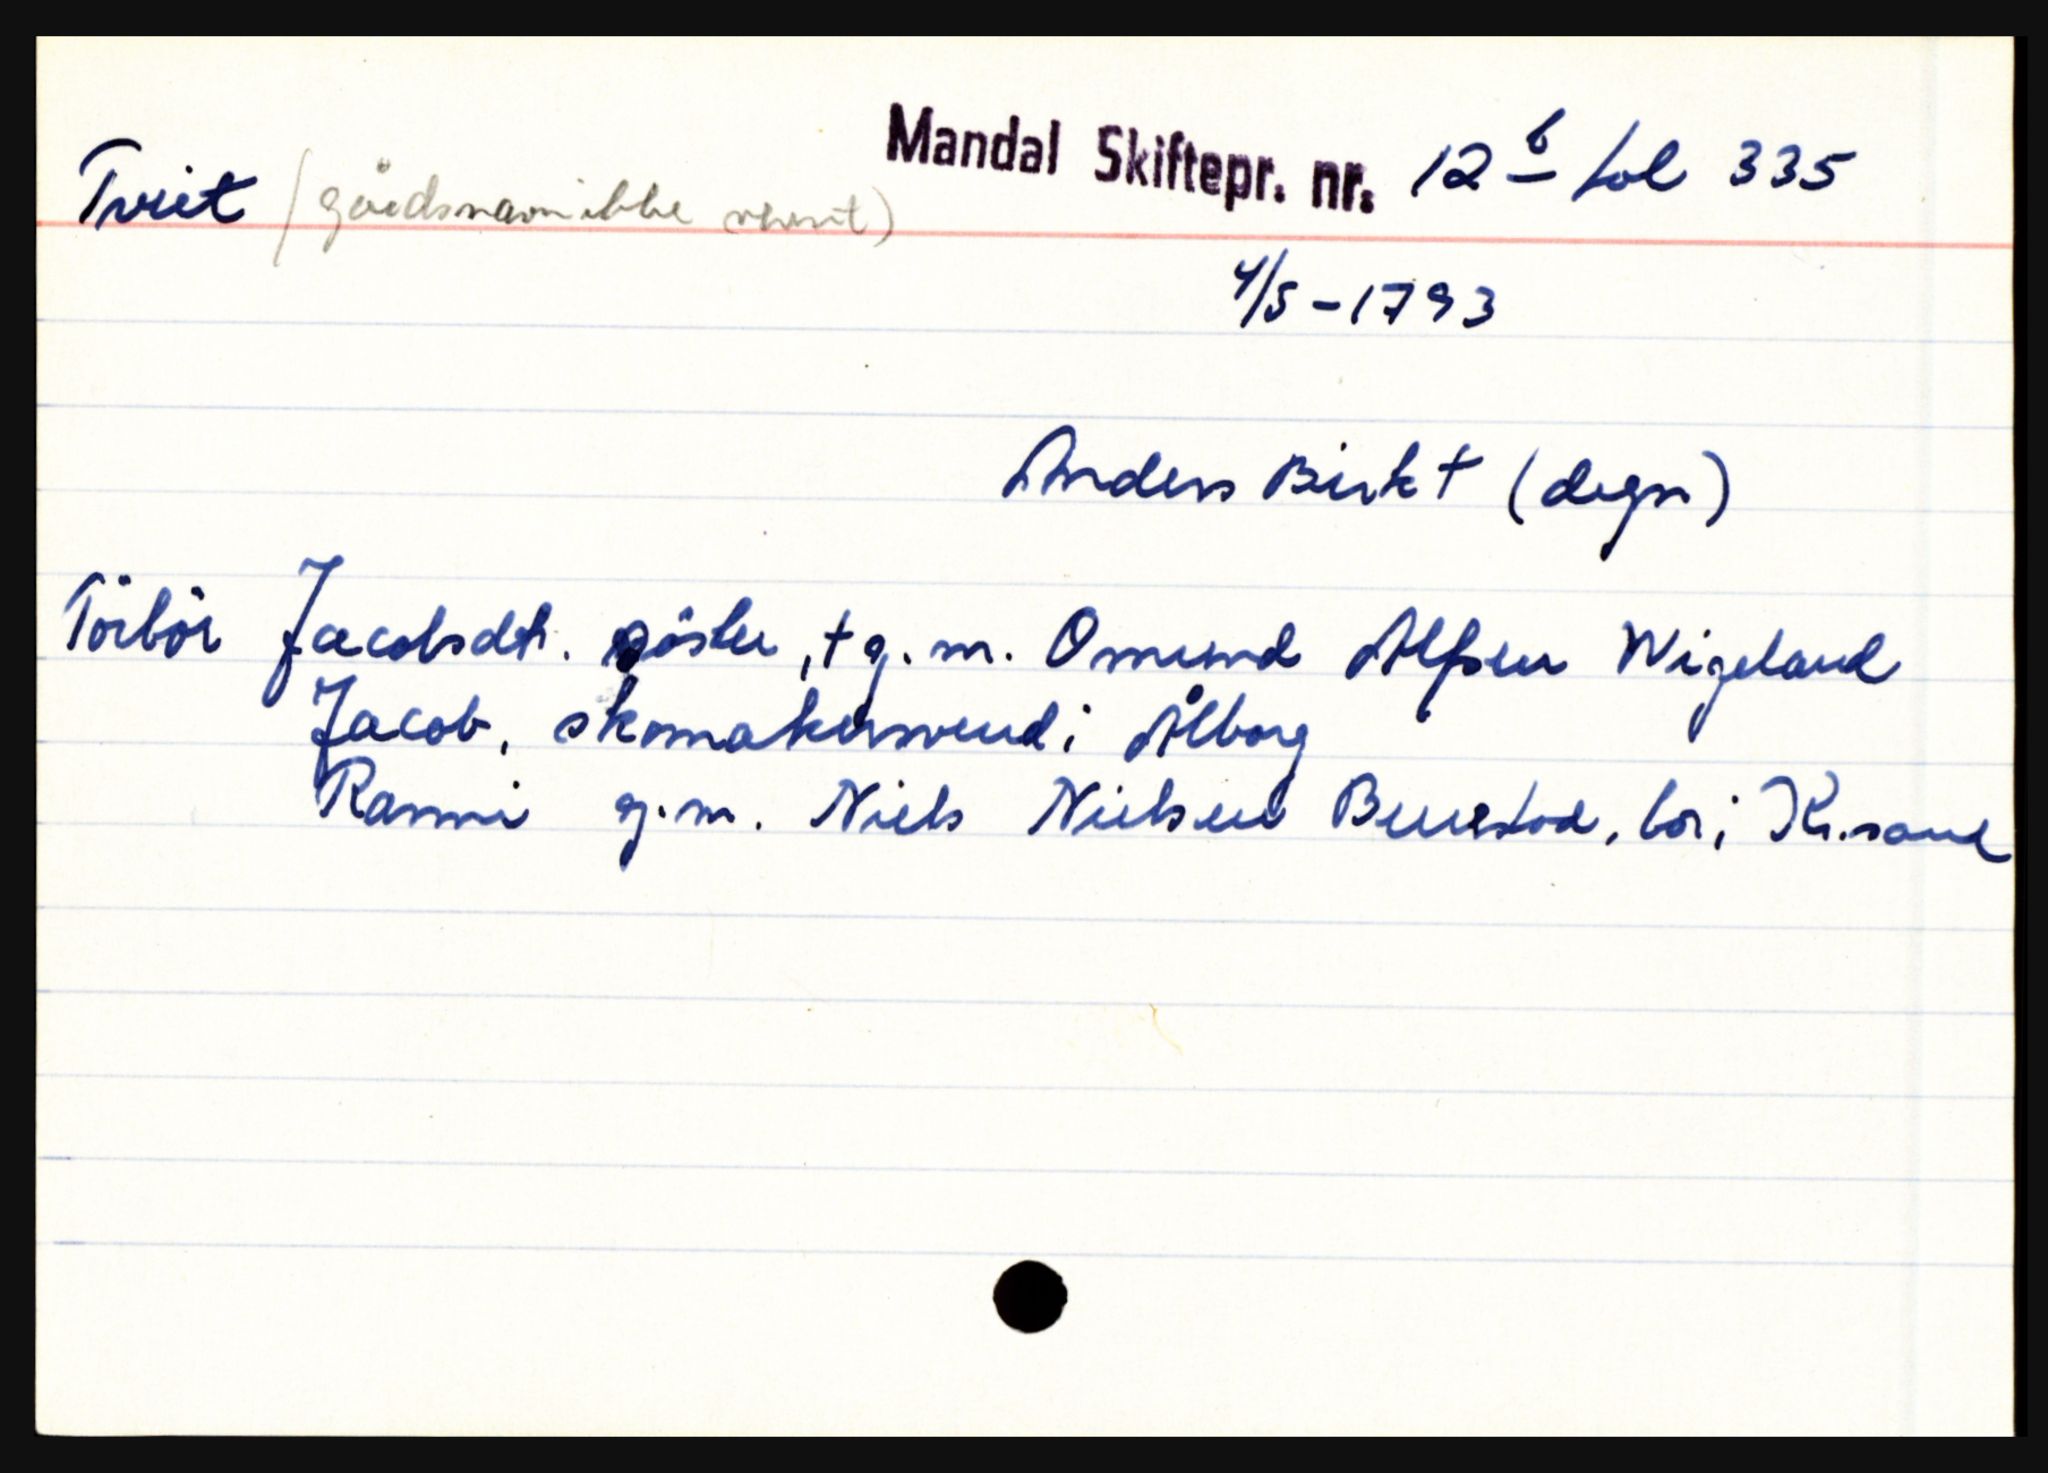 Tveit (gårdsnavn ikke nevnt) Mandal Skiftepr. nr. 12 b fol 335
4/5 - 1793
Anders Birk † (degn)
Törbör Jacobsdtr. söster, † g. m. Omund Alfsen Wigeland
Jacob, skomakersvend i Ålborg
Ranni g. m. Niels Nielsen Buestad, bor i Kr.sand